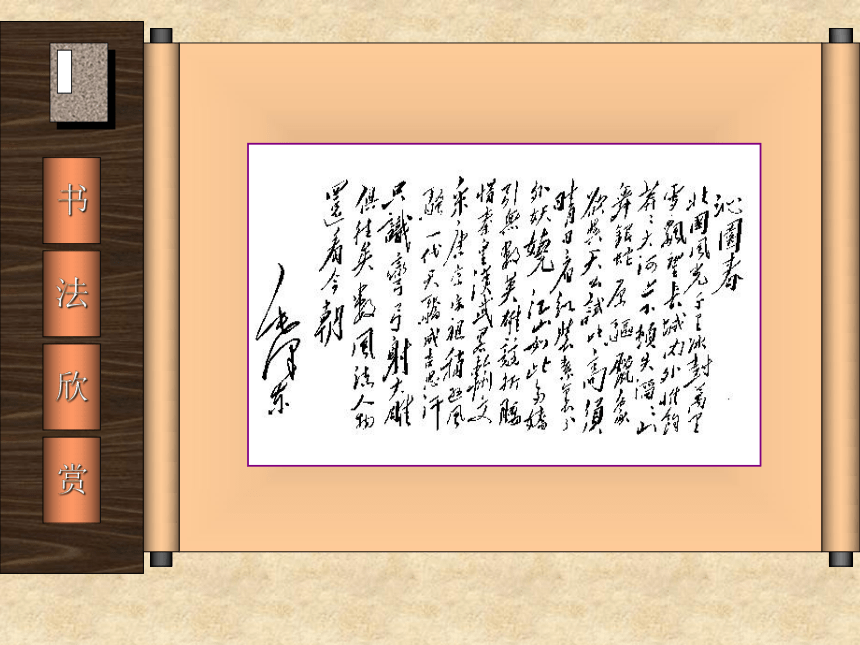 书法欣赏
沁園春
北國風光千里冰封萬里
雪飄望長城內外惟餘
莽々大河上下頓失滔々山
舞銀蛇原驅臘象
欲與天公試比高須
晴日看紅裝素裹分
外妖嬈江山如此多嬌
引無數英雄競折腰
惜秦皇漢武略輸文
采唐宗宋祖稍遜風
騷一代天驕成吉思汗
只識彎弓射大雕
俱往矣數風流人物
還看今朝
毛澤東